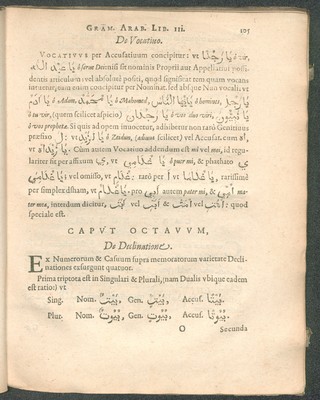 GRAM. ARAB. LIB. III. 105
De Vocativo.
VOCATIVVS per Accusatiuum concipitur: vt يَا رَجُلًا ô vir,
يَا عَبْدَ اللّٰه ô serue Dei: nisi sit nominis Proprii aut Appellatiui
dentis articulum: vel absolutè positi, quod significat rem quam vocans
intuetur, nam concipitur per Nominat. sed absque Nun vocali: vt
يَا آدَمُ ô Adam, يَا مُحَمَّدُ ô Mahomed, يَا أَيُّهَا النَّاسُ ô homines, يَا رَجُلُ
ô tu vir, (quem scilicet aspicio) يَا رَجُلَانِ ô vos duo viri: يَا نَبِيُّونَ
ô vos prophetæ. Si quis ad opem inuocetur, adhibetur non rarò Genitiuus
præfixo لَ: vt يَا لَزَيْدٍ ô Zeidun, (adsum scilicet) vel Accusat. cum ا,
vt يَا زَيْدَا. Cùm autem Vocatiuo addendum est mî vel mi, id regulariter
fit per affixum ي, vt يَا غُلَامِي ô puer mi, & phathato ي
يَا غُلَامِيَ: vel omisso, vt يَا غُلَامِ: rarò per ا vt يَا غُلَامَا, rarissimè
per simplex dham, vt يَا غُلَامُ: pro أَبِي autem pater mi, & أُمِّي mater
mea, interdum dicitur, أَبَتِ vel أَبَتَ & أُمَّتِ vel أُمَّتَ: quod
speciale est.
CAPVT OCTAVVM,
De Declinatione.
EX Numerorum & Casuum supra memoratorum varietate Declinationes
exsurgunt quatuor.
Prima triptota est in Singulari & Plurali, (nam Dualis vbique eadem
est ratio) vt
Sing. Nom. بَيْتٌ, Gen. بَيْتٍ, Accus. بَيْتًا.
Plur. Nom. بُيُوتٌ, Gen. بُيُوتٍ, Accus. بُيُوتًا.
O Secunda